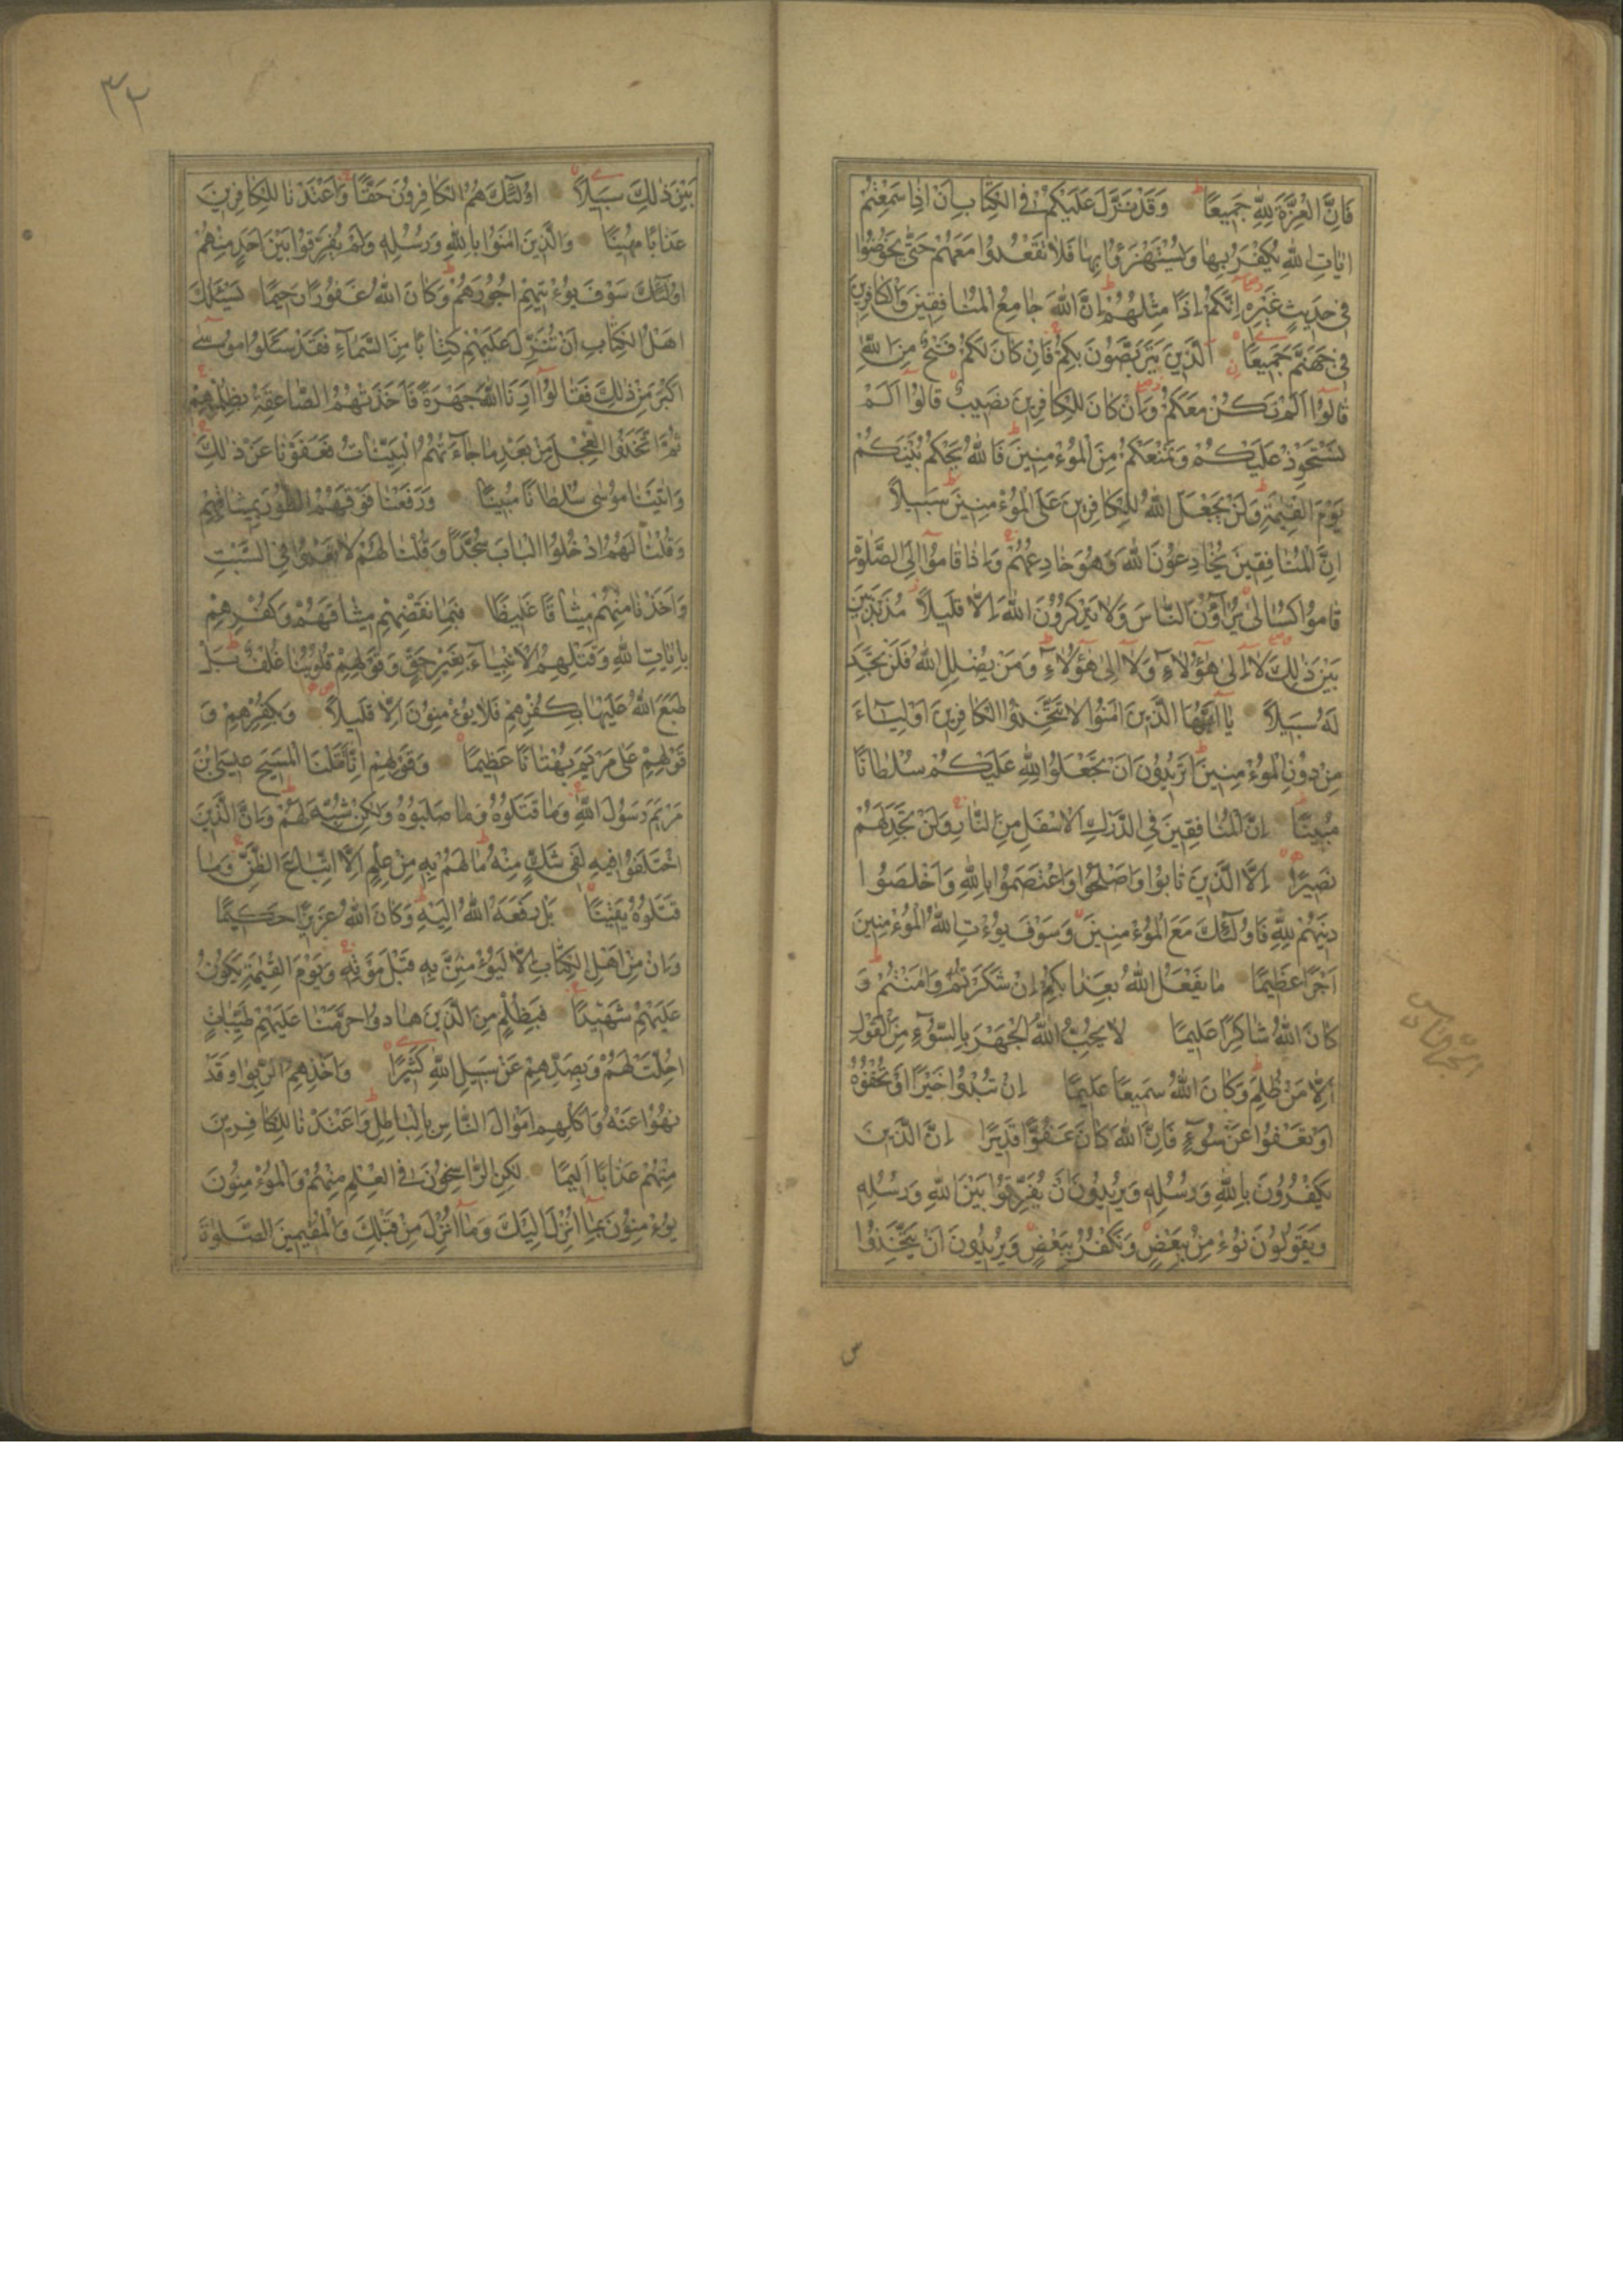 فَاِنَّ الْعِزَّةَ لِلّٰهِ جَمِيعًا وَقَدْ نَزَّلَ عَلَيْكُمْ فِي الْكِتَابِ اَنْ اِذَا سَمِعْتُمْ
اٰيَاتِ اللّٰهِ يُكْفَرُ بِهَا وَيُسْتَهْزَؤُا بِهَا فَلَا تَقْعُدُوا مَعَهُمْ حَتّٰى يَخُوضُوا
فِي حَدِيثٍ غَيْرِهِ اِنَّكُمْ اِذًا مِثْلُهُمْ اِنَّ اللّٰهَ جَامِعُ الْمُنَافِقِينَ وَالْكَافِرِينَ
فِي جَهَنَّمَ جَمِيعًا اَلَّذِينَ يَتَرَبَّصُونَ بِكُمْ فَاِنْ كَانَ لَكُمْ فَتْحٌ مِنَ اللّٰهِ
قَالُوٓا اَلَمْ نَكُنْ مَعَكُمْ وَاِنْ كَانَ لِلْكَافِرِينَ نَصِيبٌ قَالُوٓا اَلَمْ
نَسْتَحْوِذْ عَلَيْكُمْ وَنَمْنَعْكُمْ مِنَ الْمُؤْمِنِينَ فَاللّٰهُ يَحْكُمُ بَيْنَكُمْ
يَوْمَ الْقِيٰمَةِ وَلَنْ يَجْعَلَ اللّٰهُ لِلْكَافِرِينَ عَلَى الْمُؤْمِنِينَ سَبِيلًا
اِنَّ الْمُنَافِقِينَ يُخَادِعُونَ اللّٰهَ وَهُوَ خَادِعُهُمْ وَاِذَا قَامُوٓا اِلَى الصَّلٰوةِ
قَامُوا كُسَالٰى يُرَآؤُنَ النَّاسَ وَلَا يَذْكُرُونَ اللّٰهَ اِلَّا قَلِيلًا مُذَبْذَبِينَ
بَيْنَ ذٰلِكَ لَآ اِلٰى هٰٓؤُلَآءِ وَلَآ اِلٰى هٰٓؤُلَآءِ وَمَنْ يُضْلِلِ اللّٰهُ فَلَنْ تَجِدَ
لَهُ سَبِيلًا يَآ اَيُّهَا الَّذِينَ اٰمَنُوا لَا تَتَّخِذُوا الْكَافِرِينَ اَوْلِيَآءَ
مِنْ دُونِ الْمُؤْمِنِينَ اَتُرِيدُونَ اَنْ تَجْعَلُوا لِلّٰهِ عَلَيْكُمْ سُلْطَانًا
مُبِينًا اِنَّ الْمُنَافِقِينَ فِي الدَّرْكِ الْاَسْفَلِ مِنَ النَّارِ وَلَنْ تَجِدَ لَهُمْ
نَصِيرًا اِلَّا الَّذِينَ تَابُوا وَاَصْلَحُوا وَاعْتَصَمُوا بِاللّٰهِ وَاَخْلَصُوا
دِينَهُمْ لِلّٰهِ فَاُولٰٓئِكَ مَعَ الْمُؤْمِنِينَ وَسَوْفَ يُؤْتِ اللّٰهُ الْمُؤْمِنِينَ
اَجْرًا عَظِيمًا مَا يَفْعَلُ اللّٰهُ بِعَذَابِكُمْ اِنْ شَكَرْتُمْ وَاٰمَنْتُمْ وَ
كَانَ اللّٰهُ شَاكِرًا عَلِيمًا لَا يُحِبُّ اللّٰهُ الْجَهْرَ بِالسُّوٓءِ مِنَ الْقَوْلِ
اِلَّا مَنْ ظُلِمَ وَكَانَ اللّٰهُ سَمِيعًا عَلِيمًا اِنْ تُبْدُوا خَيْرًا اَوْ تُخْفُوهُ
اَوْ تَعْفُوا عَنْ سُوٓءٍ فَاِنَّ اللّٰهَ كَانَ عَفُوًّا قَدِيرًا اِنَّ الَّذِينَ
يَكْفُرُونَ بِاللّٰهِ وَرُسُلِهِ وَيُرِيدُونَ اَنْ يُفَرِّقُوا بَيْنَ اللّٰهِ وَرُسُلِهِ
وَيَقُولُونَ نُؤْمِنُ بِبَعْضٍ وَنَكْفُرُ بِبَعْضٍ وَيُرِيدُونَ اَنْ يَتَّخِذُوا
٣٢
بَيْنَ ذٰلِكَ سَبِيلًا اُولٰٓئِكَ هُمُ الْكَافِرُونَ حَقًّا وَاَعْتَدْنَا لِلْكَافِرِينَ
عَذَابًا مُهِينًا وَالَّذِينَ اٰمَنُوا بِاللّٰهِ وَرُسُلِهِ وَلَمْ يُفَرِّقُوا بَيْنَ اَحَدٍ مِنْهُمْ
اُولٰٓئِكَ سَوْفَ يُؤْتِيهِمْ اُجُورَهُمْ وَكَانَ اللّٰهُ غَفُورًا رَحِيمًا يَسْئَلُكَ
اَهْلُ الْكِتَابِ اَنْ تُنَزِّلَ عَلَيْهِمْ كِتَابًا مِنَ السَّمَآءِ فَقَدْ سَئَلُوا مُوسٰٓى
اَكْبَرَ مِنْ ذٰلِكَ فَقَالُوٓا اَرِنَا اللّٰهَ جَهْرَةً فَاَخَذَتْهُمُ الصَّاعِقَةُ بِظُلْمِهِمْ
ثُمَّ اتَّخَذُوا الْعِجْلَ مِنْ بَعْدِ مَا جَآءَتْهُمُ الْبَيِّنَاتُ فَعَفَوْنَا عَنْ ذٰلِكَ
وَاٰتَيْنَا مُوسٰى سُلْطَانًا مُبِينًا وَرَفَعْنَا فَوْقَهُمُ الطُّورَ بِمِيثَاقِهِمْ
وَقُلْنَا لَهُمُ ادْخُلُوا الْبَابَ سُجَّدًا وَقُلْنَا لَهُمْ لَا تَعْدُوا فِي السَّبْتِ
وَاَخَذْنَا مِنْهُمْ مِيثَاقًا غَلِيظًا فَبِمَا نَقْضِهِمْ مِيثَاقَهُمْ وَكُفْرِهِمْ
بِاٰيَاتِ اللّٰهِ وَقَتْلِهِمُ الْاَنْبِيَآءَ بِغَيْرِ حَقٍّ وَقَوْلِهِمْ قُلُوبُنَا غُلْفٌ بَلْ
طَبَعَ اللّٰهُ عَلَيْهَا بِكُفْرِهِمْ فَلَا يُؤْمِنُونَ اِلَّا قَلِيلًا وَبِكُفْرِهِمْ وَ
قَوْلِهِمْ عَلٰى مَرْيَمَ بُهْتَانًا عَظِيمًا وَقَوْلِهِمْ اِنَّا قَتَلْنَا الْمَسِيحَ عِيسَى ابْنَ
مَرْيَمَ رَسُولَ اللّٰهِ وَمَا قَتَلُوهُ وَمَا صَلَبُوهُ وَلٰكِنْ شُبِّهَ لَهُمْ وَاِنَّ الَّذِينَ
اخْتَلَفُوا فِيهِ لَفِي شَكٍّ مِنْهُ مَا لَهُمْ بِهِ مِنْ عِلْمٍ اِلَّا اتِّبَاعَ الظَّنِّ وَمَا
قَتَلُوهُ يَقِينًا بَلْ رَفَعَهُ اللّٰهُ اِلَيْهِ وَكَانَ اللّٰهُ عَزِيزًا حَكِيمًا
وَاِنْ مِنْ اَهْلِ الْكِتَابِ اِلَّا لَيُؤْمِنَنَّ بِهِ قَبْلَ مَوْتِهِ وَيَوْمَ الْقِيٰمَةِ يَكُونُ
عَلَيْهِمْ شَهِيدًا فَبِظُلْمٍ مِنَ الَّذِينَ هَادُوا حَرَّمْنَا عَلَيْهِمْ طَيِّبَاتٍ
اُحِلَّتْ لَهُمْ وَبِصَدِّهِمْ عَنْ سَبِيلِ اللّٰهِ كَثِيرًا وَاَخْذِهِمُ الرِّبٰوا وَقَدْ
نُهُوا عَنْهُ وَاَكْلِهِمْ اَمْوَالَ النَّاسِ بِالْبَاطِلِ وَاَعْتَدْنَا لِلْكَافِرِينَ
مِنْهُمْ عَذَابًا اَلِيمًا لٰكِنِ الرَّاسِخُونَ فِي الْعِلْمِ مِنْهُمْ وَالْمُؤْمِنُونَ
يُؤْمِنُونَ بِمَآ اُنْزِلَ اِلَيْكَ وَمَآ اُنْزِلَ مِنْ قَبْلِكَ وَالْمُقِيمِينَ الصَّلٰوةَ